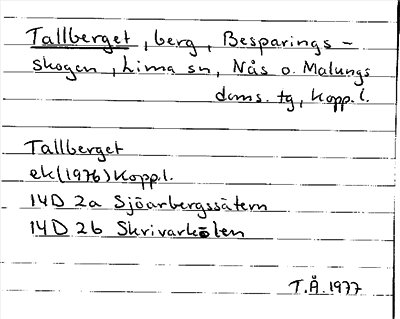 Tallberget, berg, Besparings-
skogen, Lima sn, Nås o. Malungs
doms. tg, Kopp. l.
Tallberget
ek (1976) Kopp.l.
14D 2a Sjöarbergssätern
14D 2b Skrivarkölen
T.Å. 1977